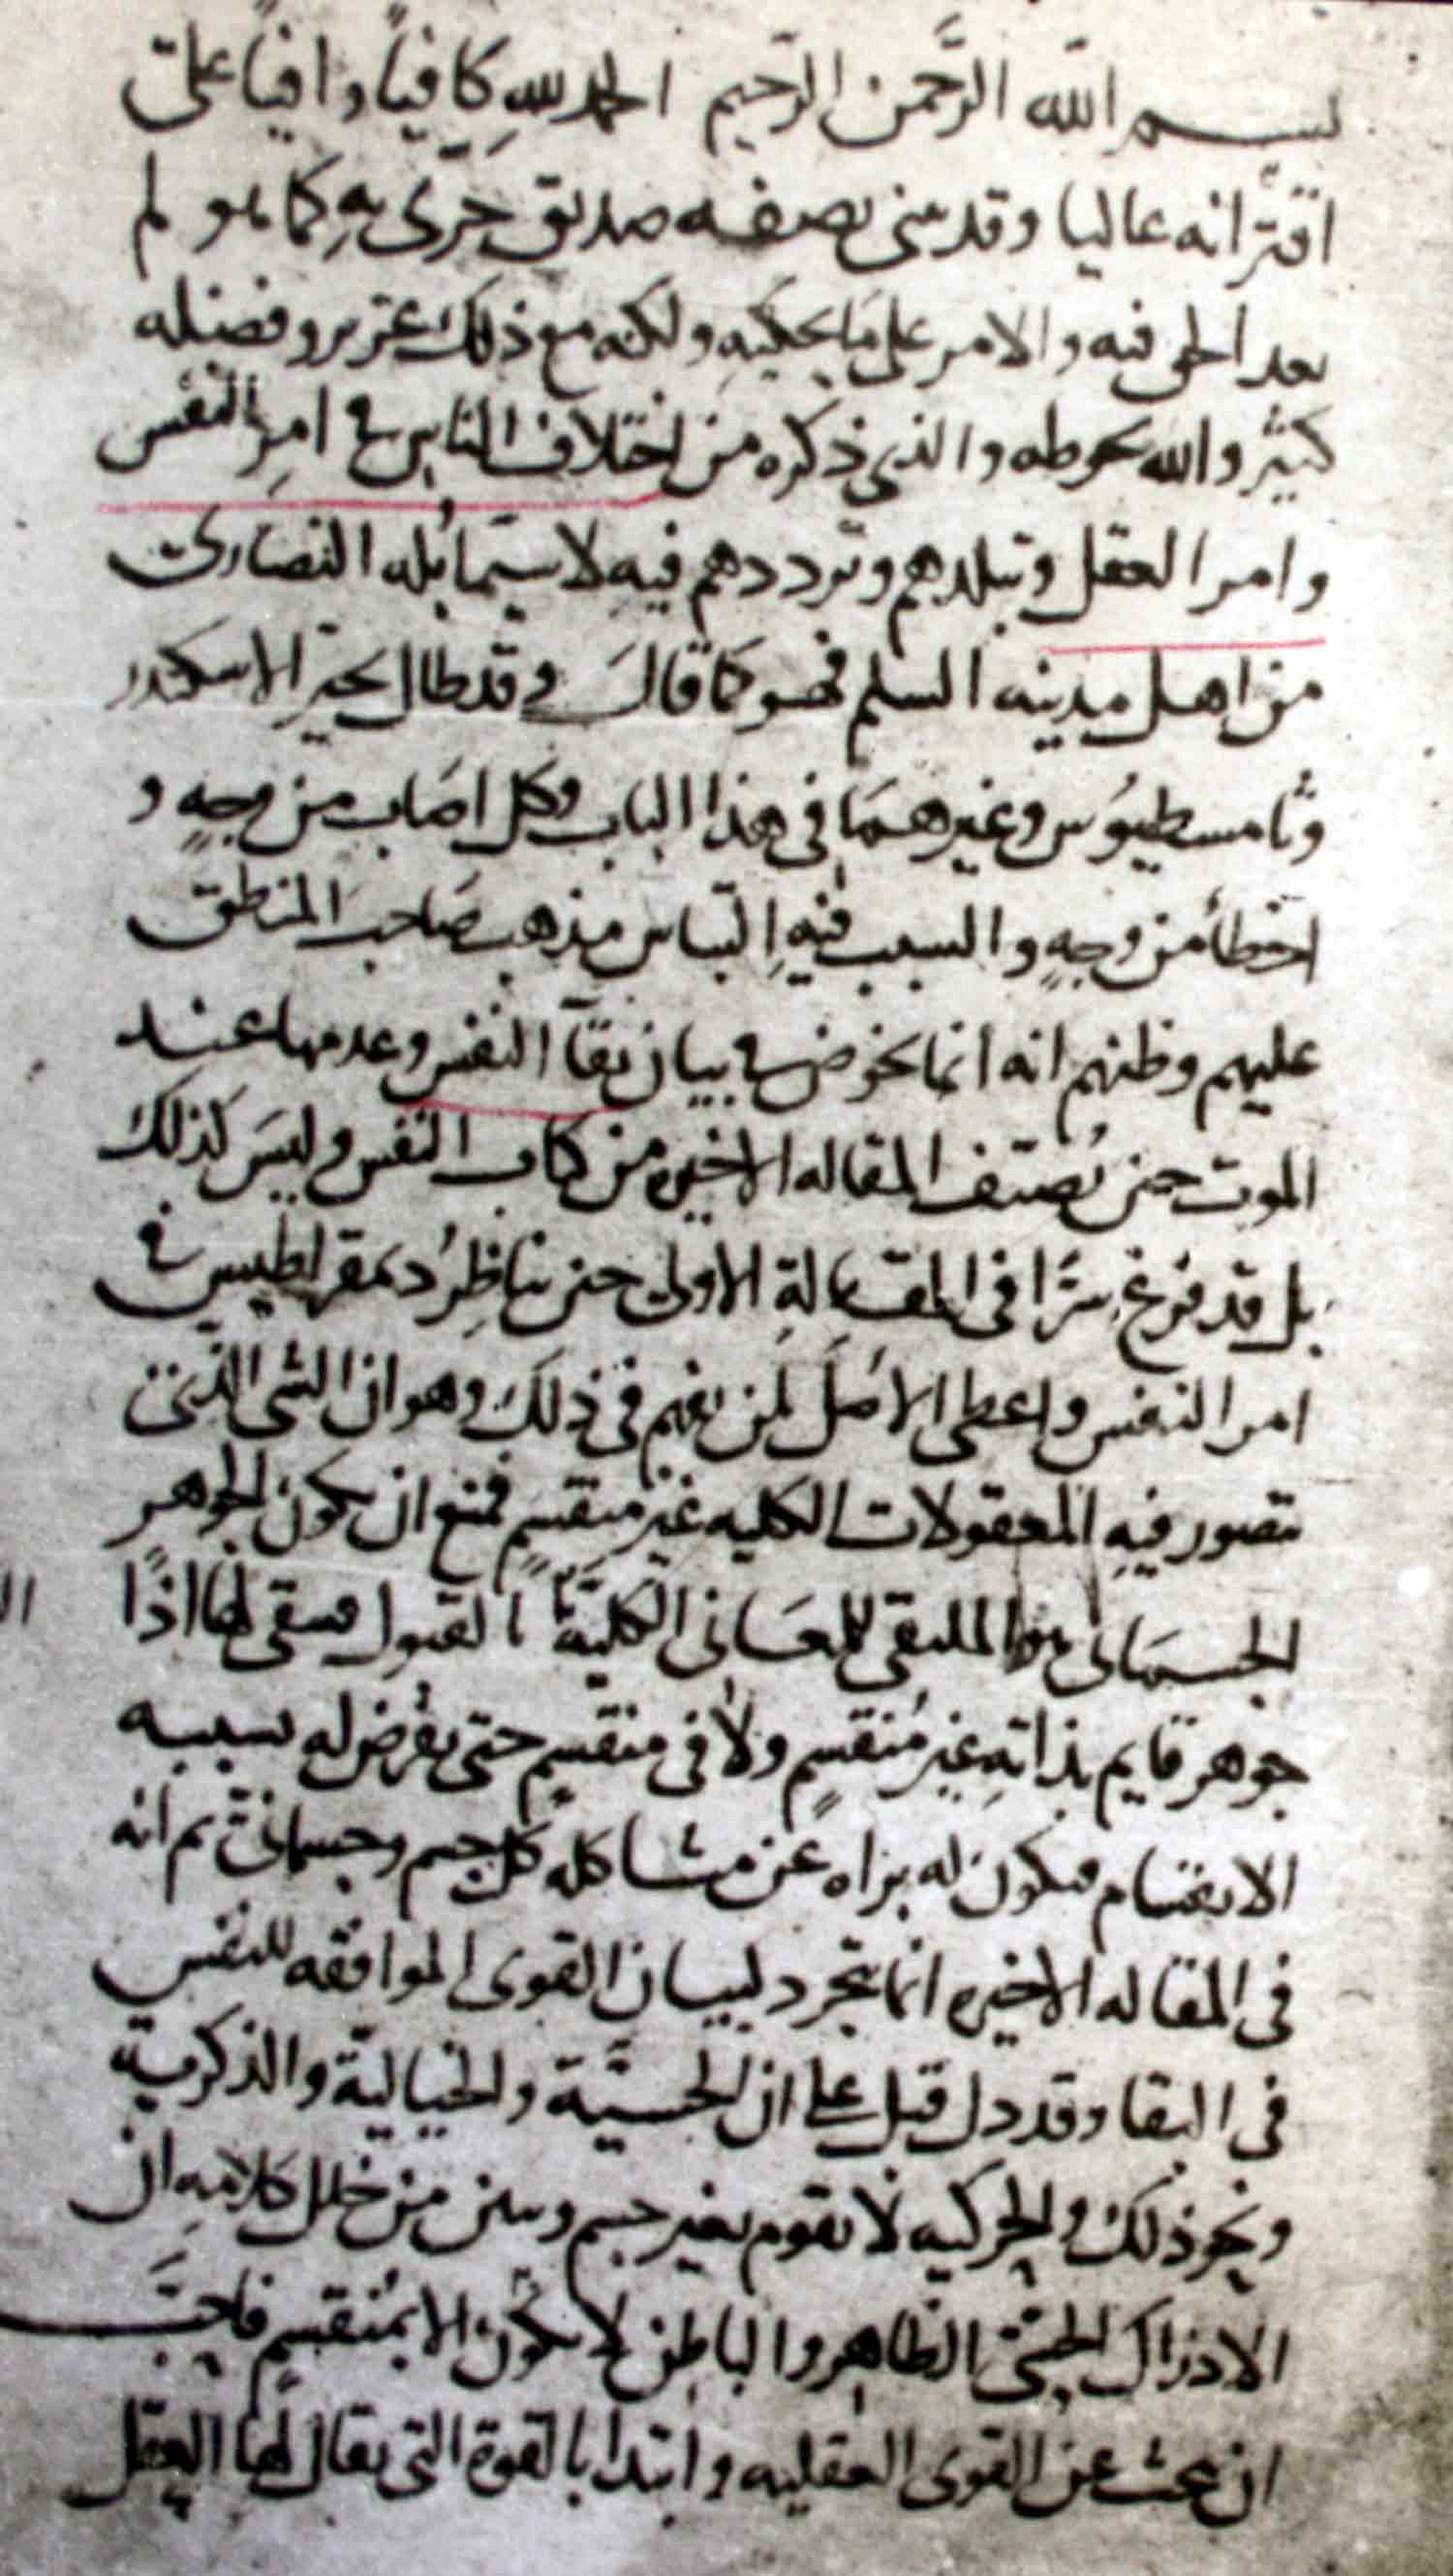 بسم الله الرَّحمن الرَّحيم الحمد للهِ كافياً وافياً على
اقترانه عاليا وقد منى بصفه صديق حَرىً بهِ كما هو لم
بعد الحق فيه والامر على مَا يحكيهِ ولكنه مع ذلك عزيز وفضله
كثير والله يحوطه والذى ذكره من اختلاف الناس فى امرِ النفس
وامر العقل وتبلدهم وترددهم فيهِ لا سيّما بُله النصَارى
من اهل مدينه السلم فهو كما قالَ وقد طال تحير الاسكندر
وثامسطيوُس وغيرهمَا فى هذا الباب وكل اصَاب من وجهٍ و
اخطأ من وجهٍ والسبب فيهِ اِلتباس مذهب صَاحب المنطق
عليهم وظنهم انه انما يخوض فى بيان بقآ النفس وعدمها عند
الموت حين يُصنف المقاله الاخيره من كتاب النفس وليسَ كذلك
بل قد فرغ سرًّا فى المقالةِ الاولى حين يناظِرُ دمقراطيس فى
امر النفس واعطى الاصْلَ لمن يفهم فى ذلكَ وهو ان الشى الذى
تتصور فيهِ المعقولات الكليه غير منقسمٍ فمنع ان يكون الجوهر
الجسمَانى هو الملتقى للمعَانى الكليّة القبول فيبقى لها اذًا
جوهر قايم بذاتهِ غير مُنقسمٍ ولا فى منقسمٍ حتى يفرض له بسببه
الانقسام فيكون له براه عن مشاكله كل جسم وجسمانى ثم انه
فى المقاله الاخيره انما تجرد لبيان القوى الموافقه للنفس
فى البقا وقد دل قبل على ان الحسيَّة والخيالية والذكرية
ونحو ذلك والحركيه لا تقوم بغير جسم وبين من خلل كلامهِ ان
الادراك الحسّى الظاهر والباطن لا يكون الا بمُنقسمٍ فاحبَّ
ان يبحث عن القوى العقليه وابتدا بالقوة التى يقال لها العقل